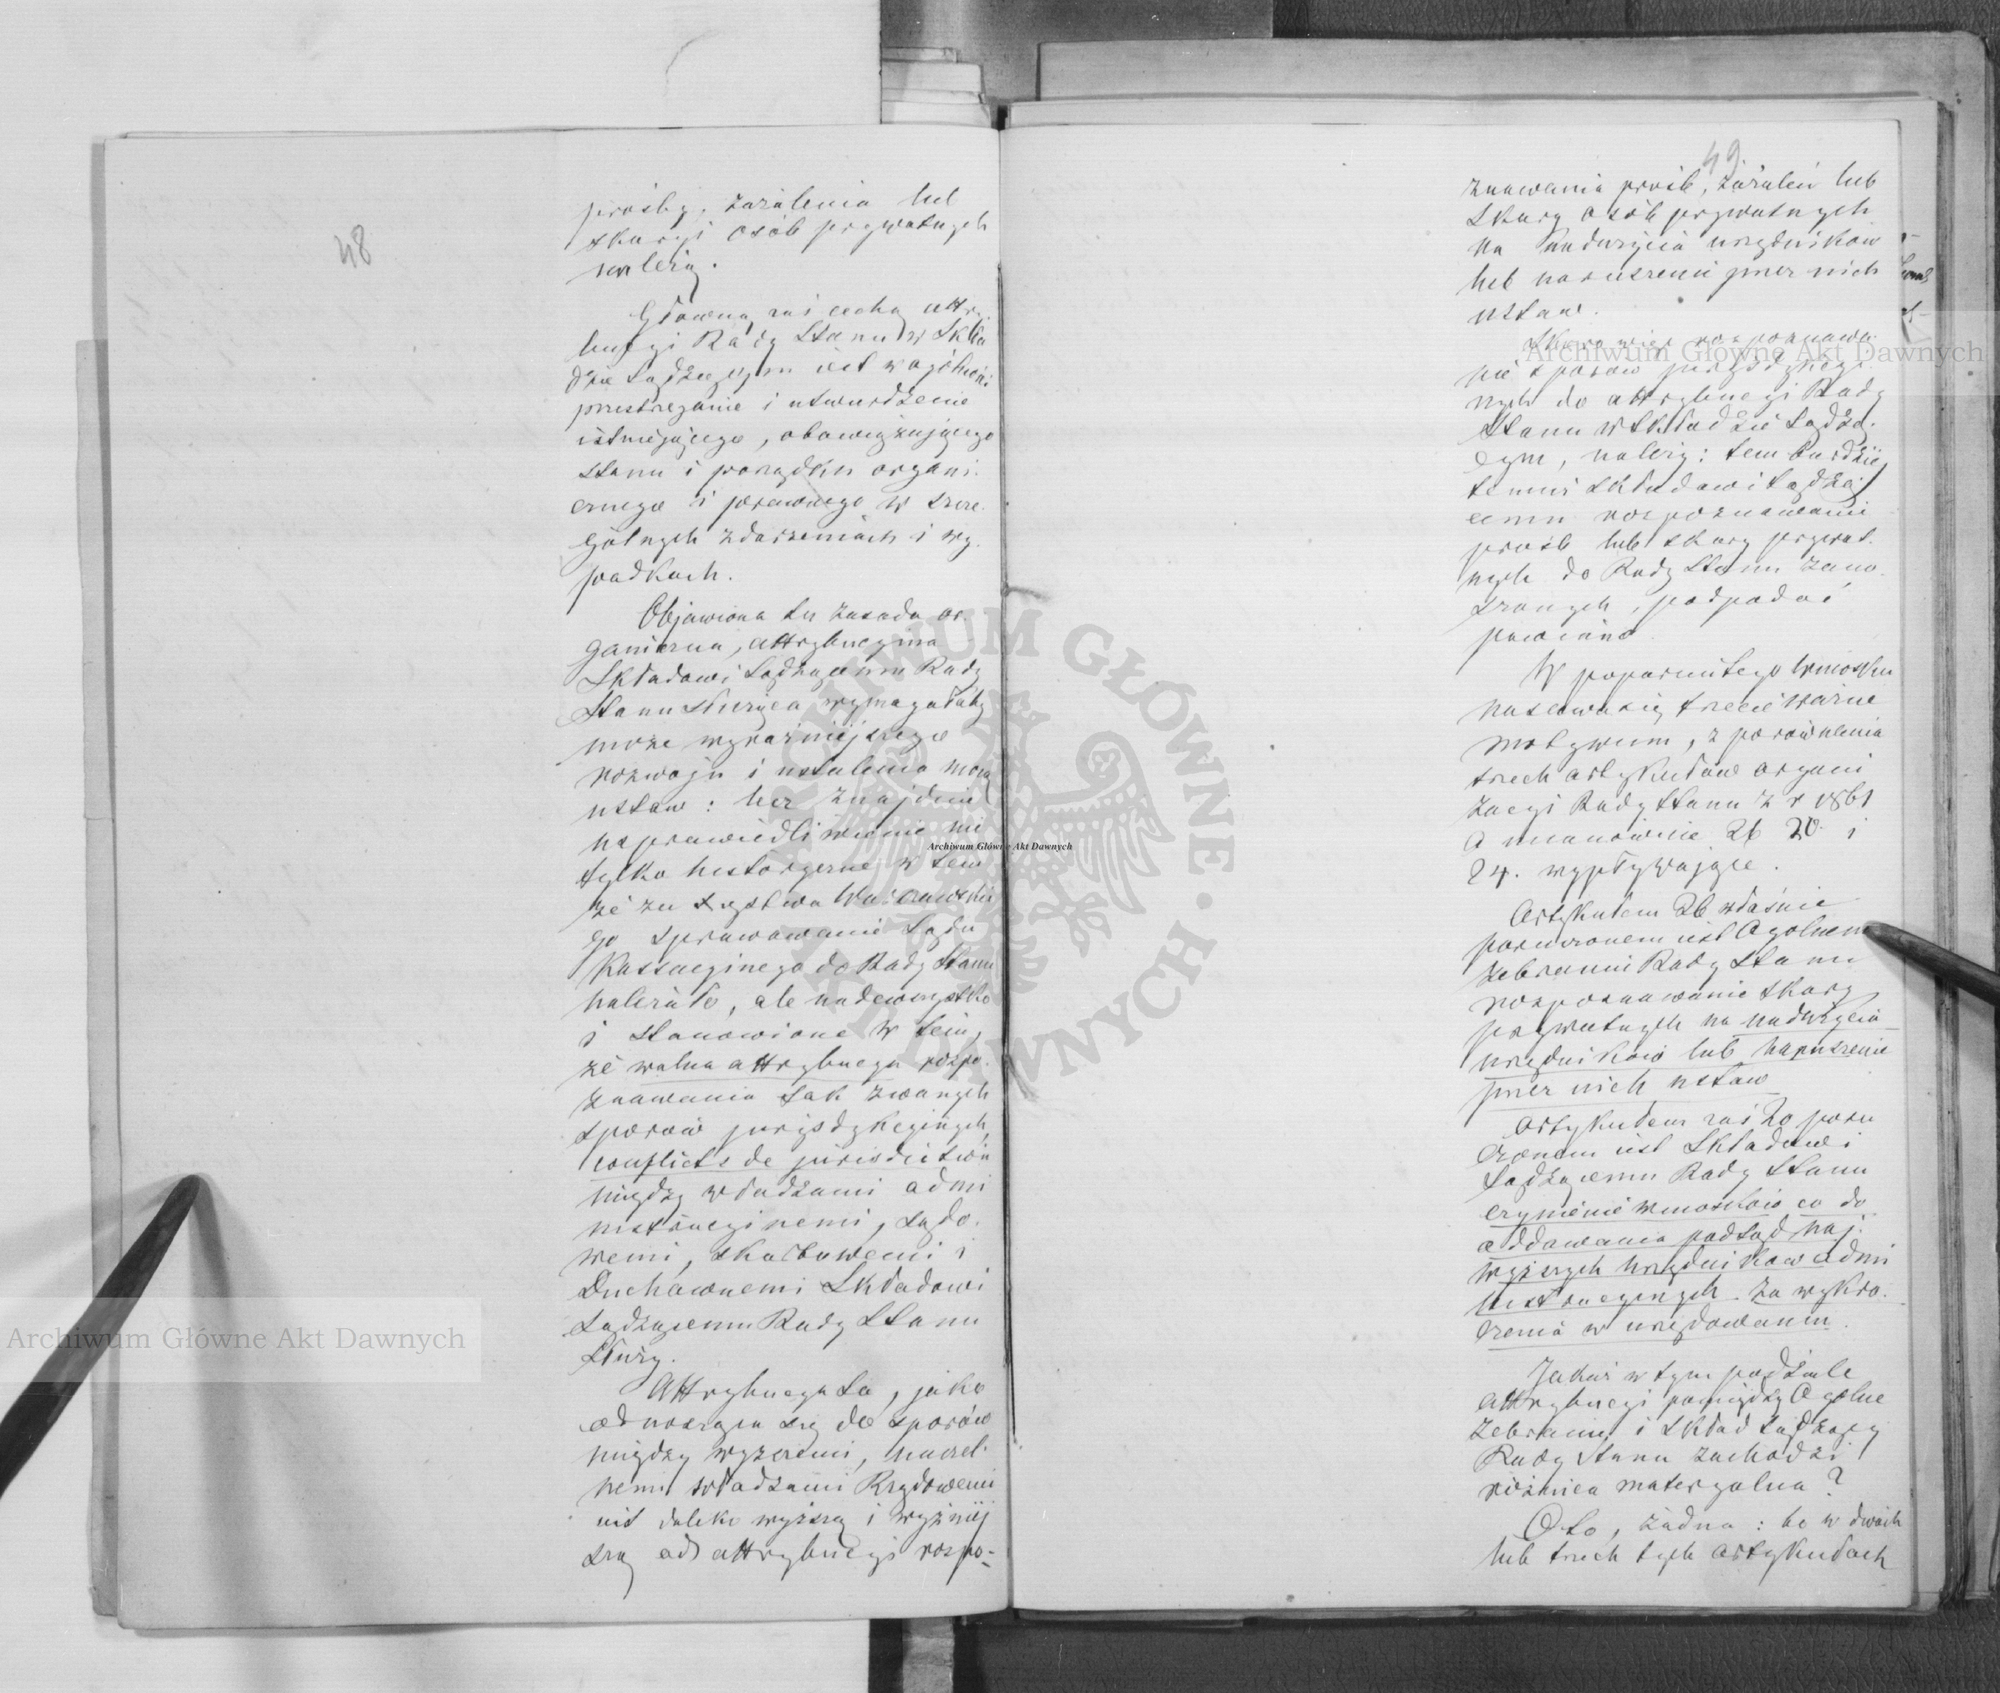 48
prośby, zażalenia lub
skargi osób prywatnych
należą.
Główną zaś cechą attry-
bucyi Rady Stanu w Skła
dzie Sądzącym jest w ogólności
przestrzeganie i utwierdzenie
istniejącego, obowiązującego
stanu i porządku organi-
cznego i prawnego w szcze-
gólnych zdarzeniach i wy-
padkach.
Objawiona tu zasada or-
ganiczna, attrybucyjna
Składowi Sądzącemu Rady
Stanu służąca wymagałaby
może wyraźniejszego
rozwoju i ustalenia mocą
ustaw: lecz znajduje
usprawiedliwienie nie
tylko historyczne w tem
że za Xięstwa Warszawskie
go sprawowanie Sądu
Kassacyjnego do Rady Stanu
należało, ale nadewszystko
i stanowione w tem,
że walna attrybucya rozpo-
znawania tak zwanych
sporów jurysdykcyjnych,
conflicts de jurisdiction
między władzami admi
nistracyjnemi, sądo-
wemi, skarbowemi i
Duchownemi Składowi
Sądzącemu Rady Stanu
służy.
Attrybucya ta, jako
odnosząca się do sporów
między wyższemi, naczel-
nemi władzami Rządowemi
jest daleko wyższą i ważniej
szą od attrybucyi rozpo-
49
znawania próśb, zażaleń lub
skarg osób prywatnych
na nadużycia urzędników
lub naruszenie przez nich
ustaw.
Skoro więc rozpoznawa
nie sporów jurysdykcyj
nych do attrybucyi Rady
Stanu w Składzie Sądzą-
cym, należy: tem bardziej
temuż Składowi Sądzą-
cemu rozpoznawanie
próśb lub skarg prywat-
nych do Rady Stanu zano-
szonych, podpadać
powinno.
W poparciu tego wniosku
nasuwa się trzecie ważne
motywum, z porównania
trzech artykułów organi
zacyi Rady Stanu z r 1861
a mianowicie 26 20. i
24. wypływające.
Artykułem 26 właśnie
poruczonem jest Ogólnemu
Zebraniu Rady Stanu
rozpoznawanie skarg
prywatnych na nadużycia
urzędników lub naruszenie
przez nich ustaw
Artykułem zaś 20 poru
czonem jest Składowi
Sądzącemu Rady Stanu
czynienie wniosków co do
oddawania pod Sąd naj-
wyższych urzędników admi
nistracyjnych za wykro-
czenia w urzędowaniu.
Jakaż w tym podziale
attrybucyi pomiędzy Ogólne
Zebranie i Skład Sądzący
Rady Stanu zachodzi
różnica materyalna?
Oto, żadna: bo w dwóch
lub trzech tych artykułach
Archiwum Główne Akt Dawnych
Archiwum Główne Akt Dawnych
Archiwum Główne Akt Dawnych
ARCHIWUM GŁÓWNE AKT DAWNYCH